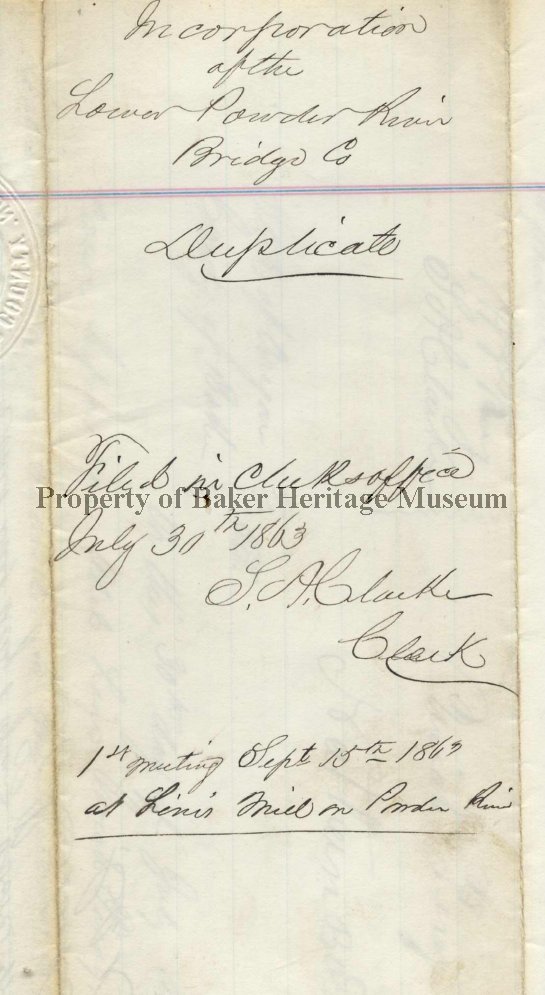 Incorporation
of the
Lower Powder River
Bridge Co
Duplicate
Filed in Clerks office
Property of Baker Heritage Museum
July 30th 1863
S. A. Clarke
Clerk
1st meeting Sept 15th 1863
at Mill on Powder River
COUNTY